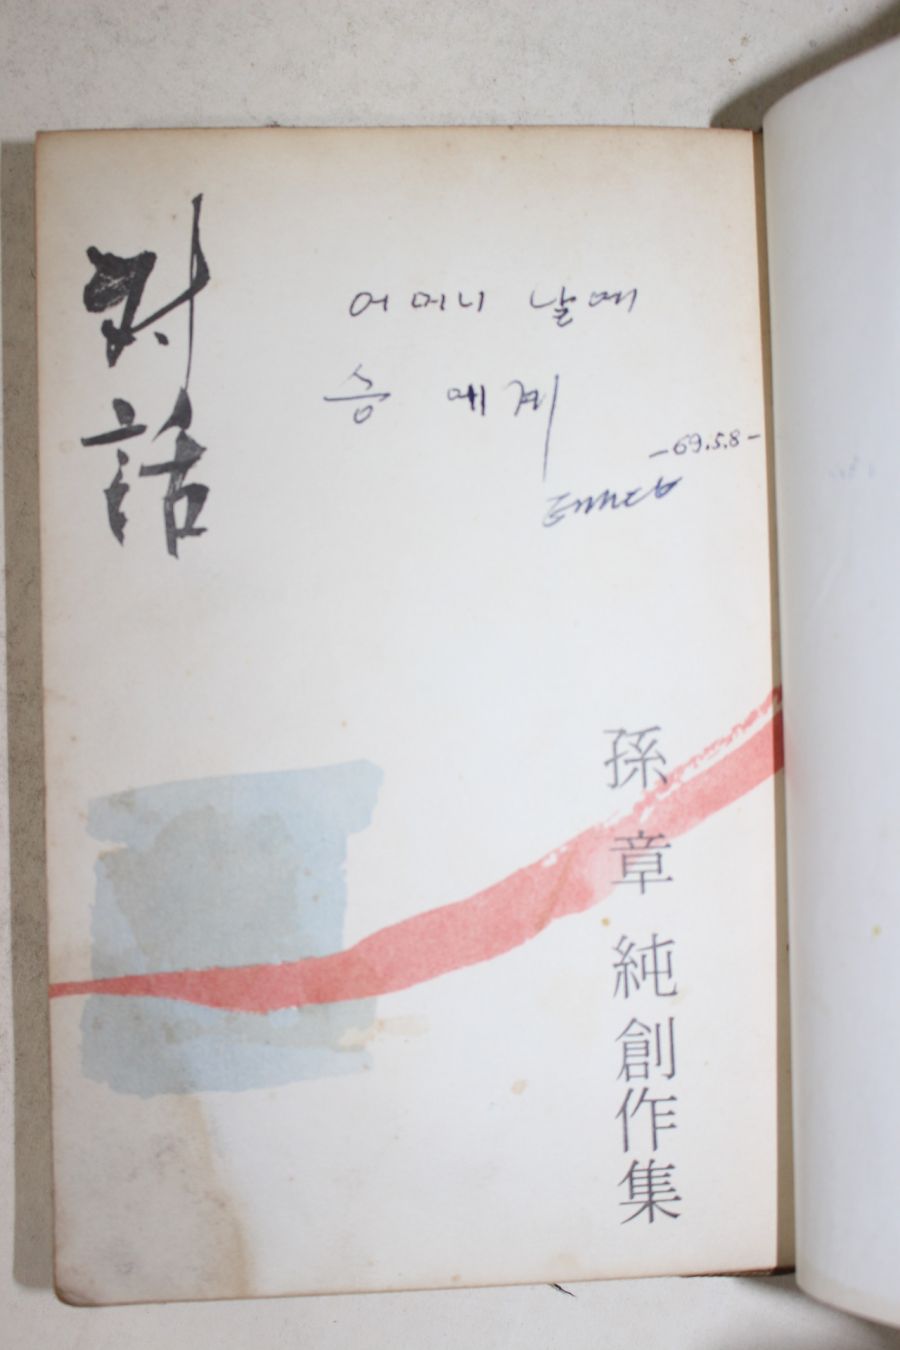 対話
어머니 날에
숭 에게
-69.5.8-
孫章純創作集